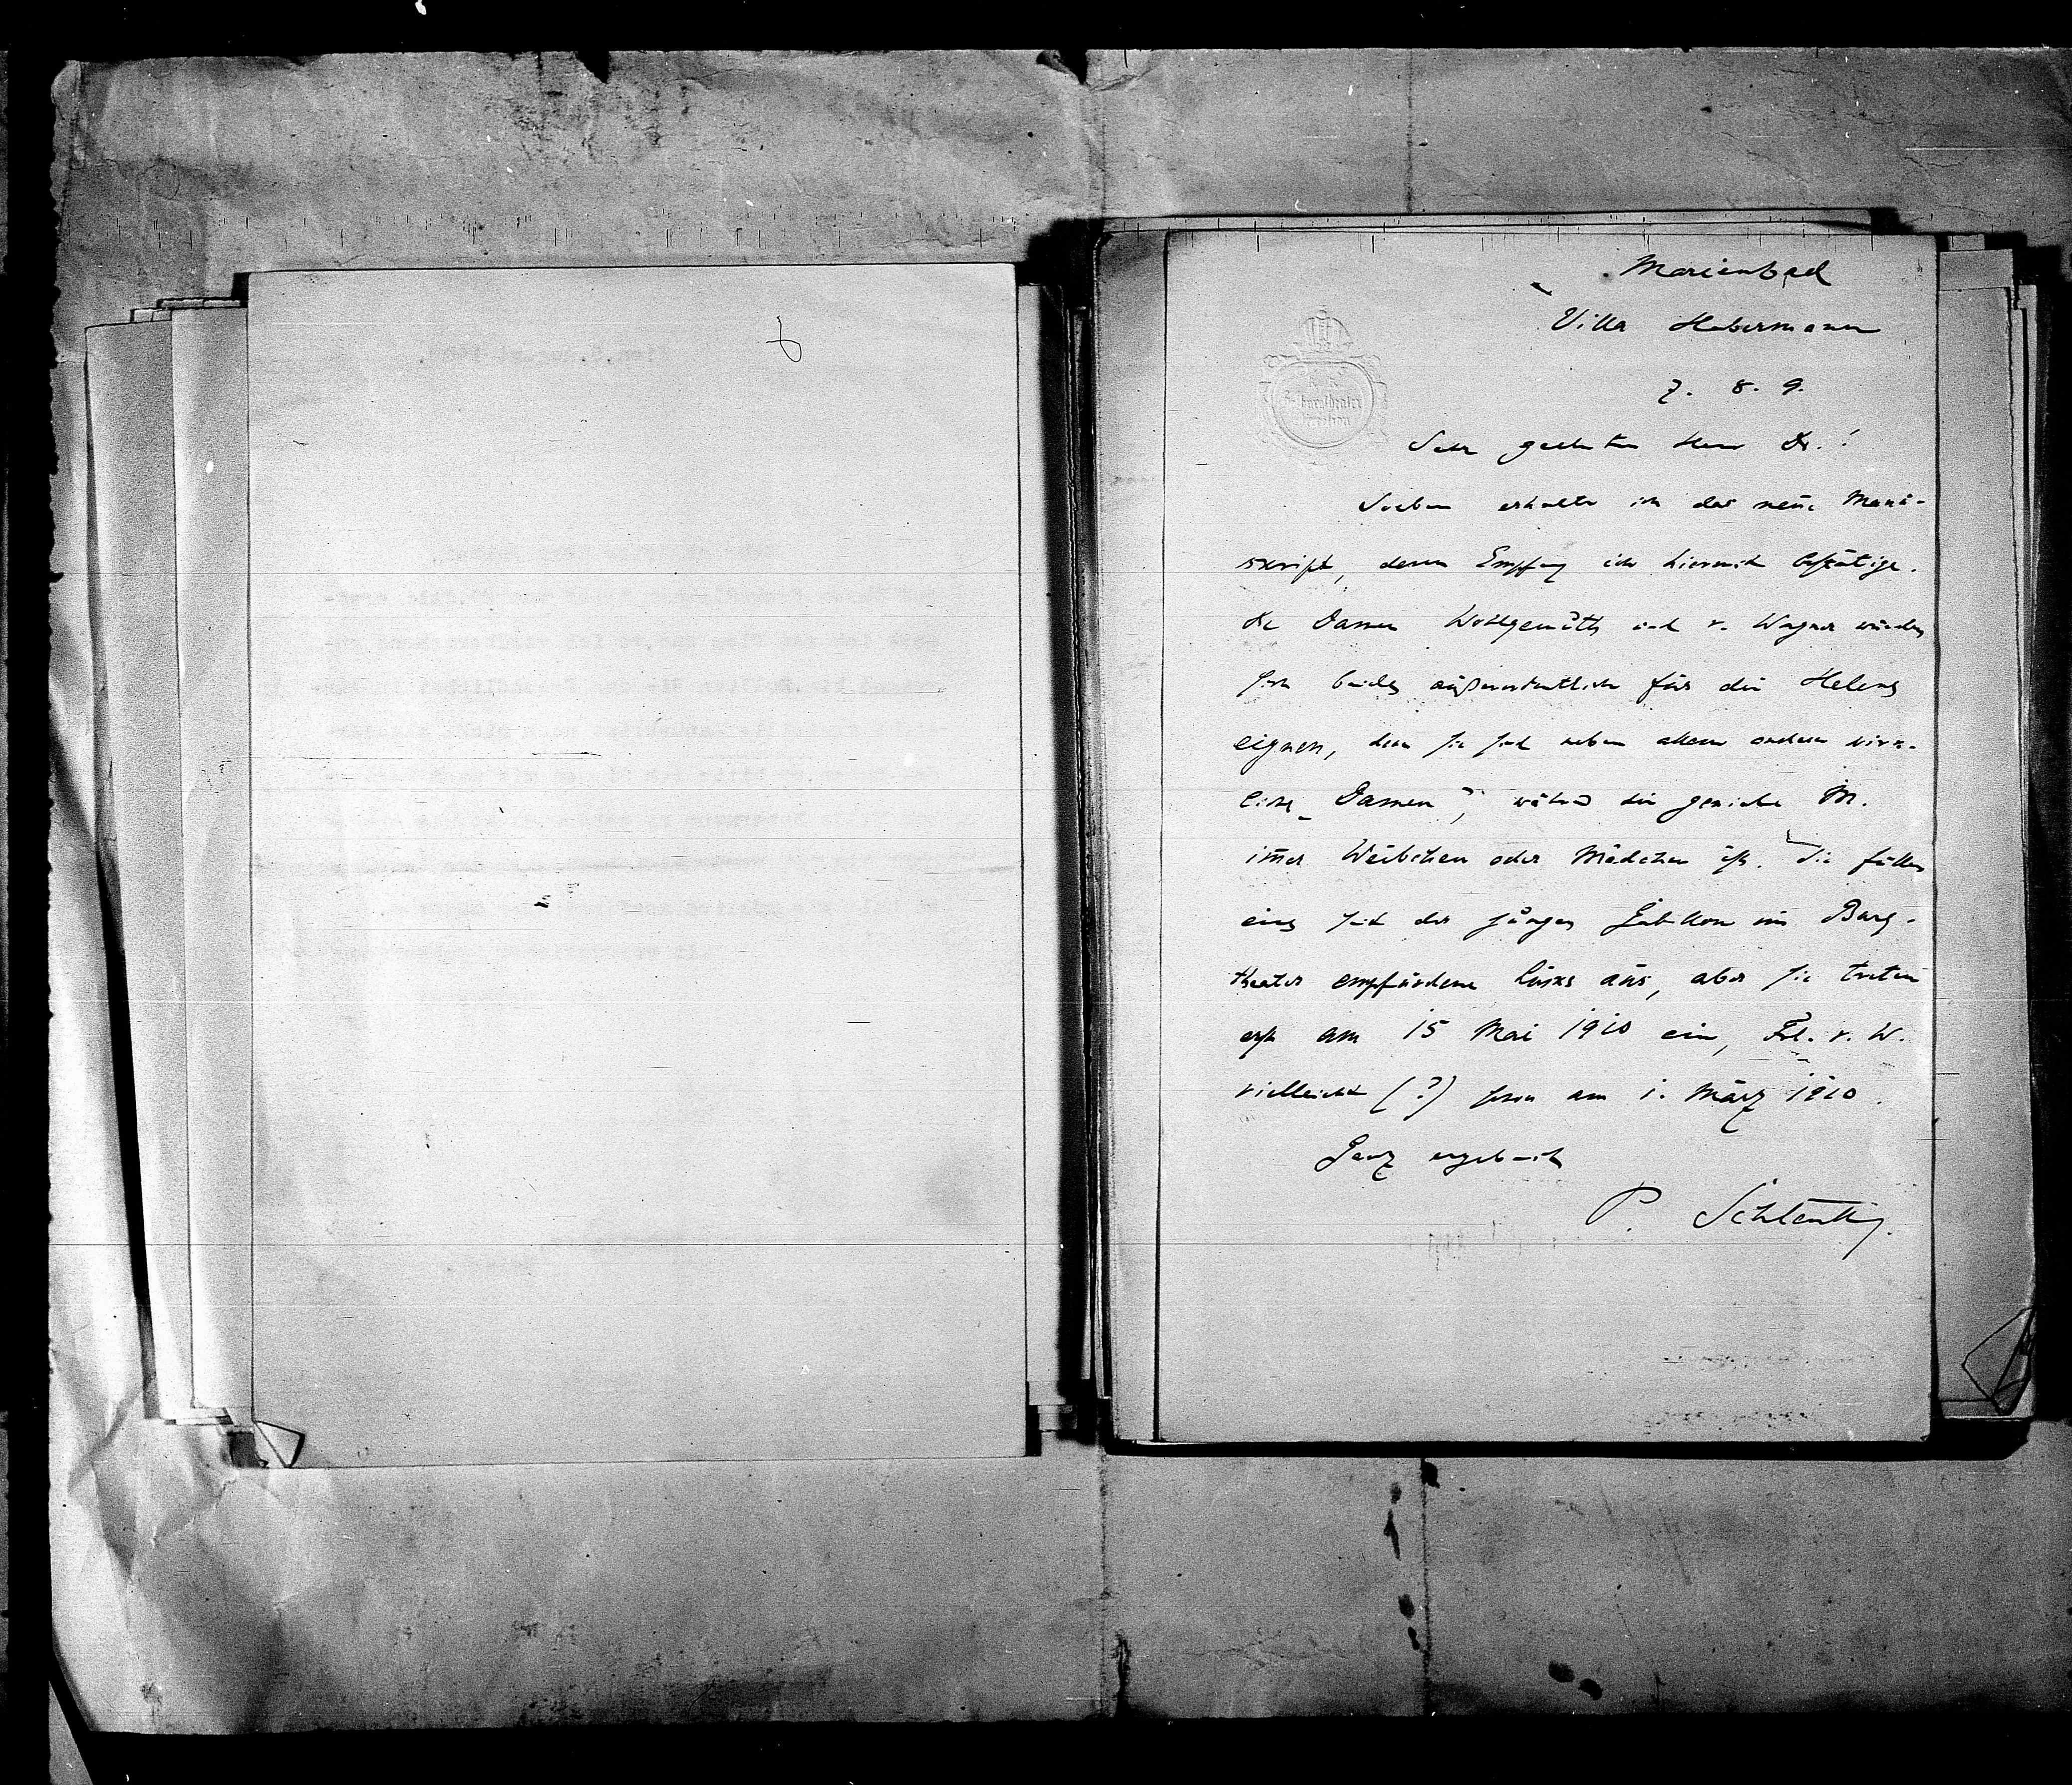 Marienbad
Villa Habermann
7. 8. 9.
K. K.
Hofburgtheater
Direction
Sehr geehrter Herr Dr.!
Soeben erhalte ich das neue Manu-
skript, deren Empfang ich hiermit bestätige.
Die Damen Wohlgemuth und v. Wagner würden
sich beide außerordentlich für die Helene
eignen, denn sie sind neben allem andern wirk-
liche „Damen“, während die geniale M.
immer Weibchen oder Mädchen ist. Sie füllen
eine seit der jungen Gabillon im Burg-
theater empfundene Lücke aus, aber sie treten
erst am 15 Mai 1910 ein, Frl. v. W.
vielleicht (?) schon am 1. März 1910.
Ganz ergebenst
P. Schlenther.